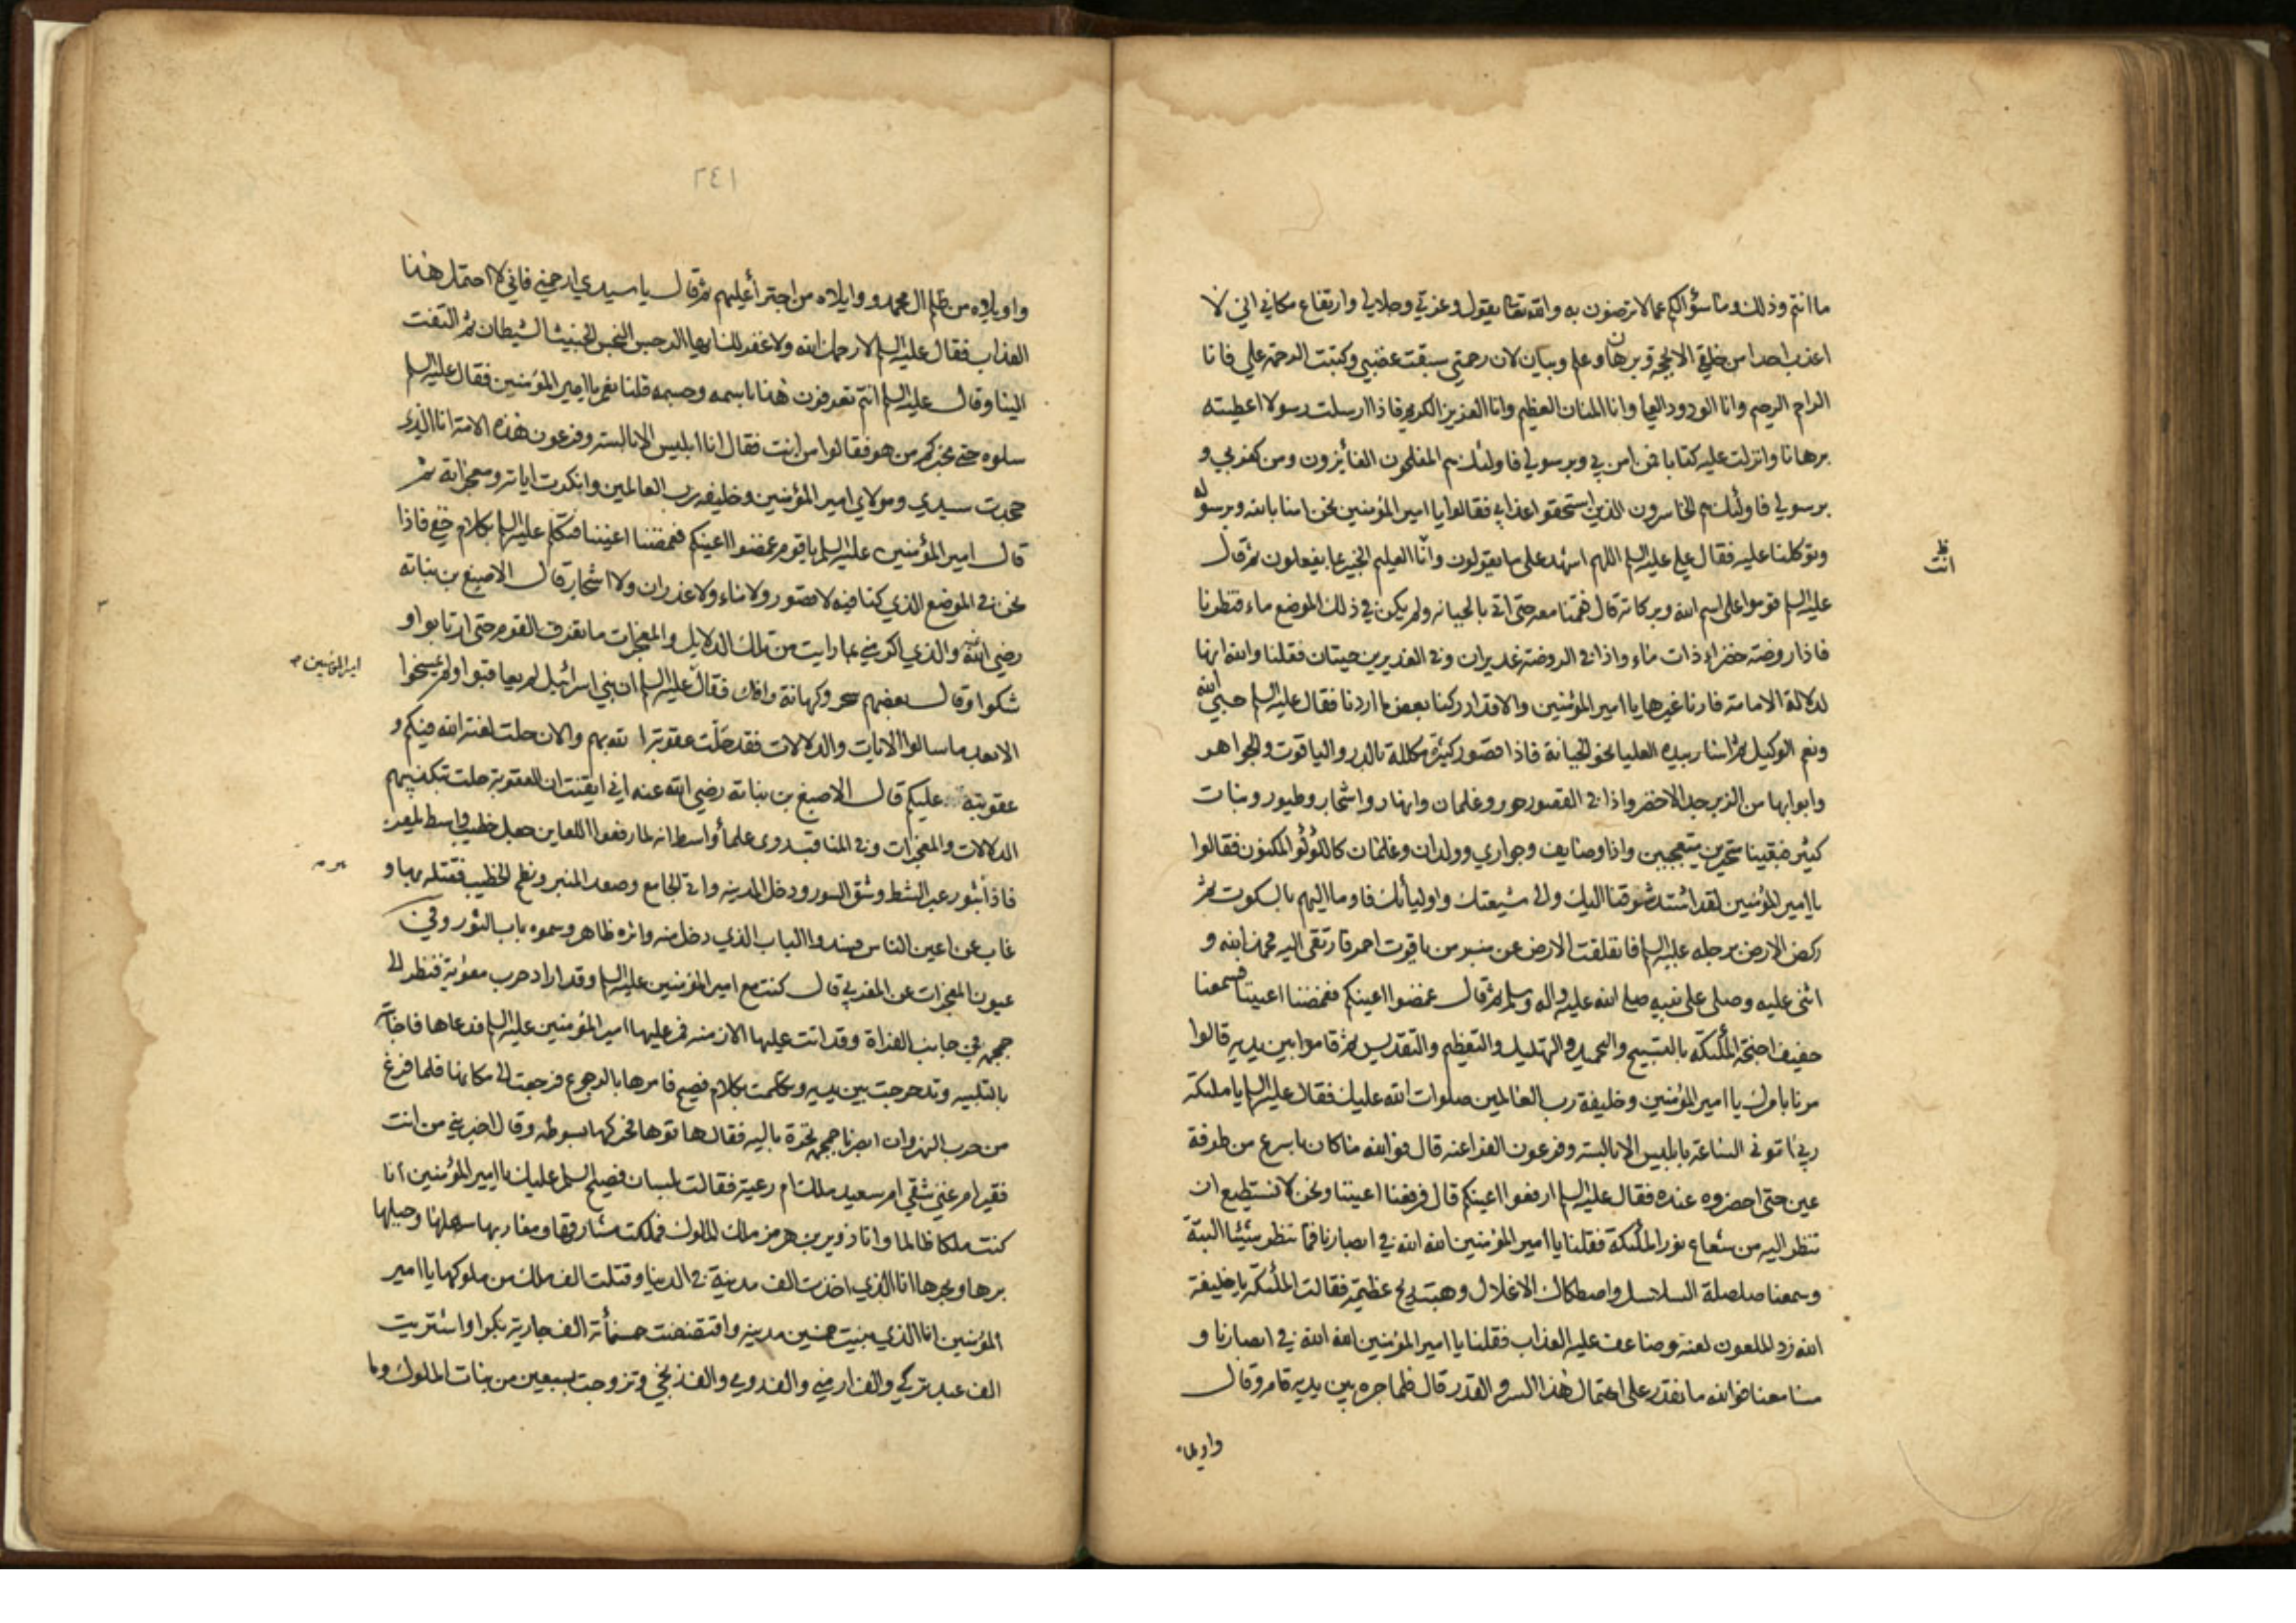 ما انتم وذلك وما سؤالكم عما لا ترضون به والله تعا يقول وعزتي وجلالي وارتفاع مكاني اني لا
اعذب احدا من خلقي الا بحجة وبرهان وعلم وبيان لان رحمتي سبقت غضبي وكتبت الرحمة علي فانا
الراحم الرحيم وانا الودود العلي وانا المنان العظيم وانا العزيز الكريم فاذا ارسلت رسولا اعطيته
برهانا وانزلت عليه كتابا فمن امن بي وبرسولي فاولئك هم المفلحون الفائزون ومن كفر بي و
برسولي فاولئك هم الخاسرون الذين استحقوا عذابي فقالوا يا امير المؤمنين نحن امنا بالله وبرسوله
وتوكلنا عليه فقال علي عليه السلم اللهم اشهد على ما يقولون وانا العليم الخبير بما يفعلون ثم قال
ظ
انت
عليه السلم قوموا على اسم الله وبركاته قال فقمنا معه حتى اتى بالجبانه ولم يكن في ذلك الموضع ماء فنظرنا
فاذا روضة خضراء ذات ماء واذا في الروضة غديران وفي الغديرين حيتان فقلنا والله انها
لدلالة الامامة فارنا غيرها يا امير المؤمنين والا قد ادركنا بعض ما اردنا فقال عليه السلم حسبي الله
ونعم الوكيل ثم اشار بيده العليا نحو الجبانة فاذا قصور كثيرة مكللة بالدر والياقوت والجواهر
وابوابها من الزبرجد الاخضر واذا في القصور حور وغلمان وانهار واشجار وطيور ونبات
كثير فبقينا متحيرين متعجبين واذا وصايف وجواري وولدان وغلمان كاللؤلؤ المكنون فقالوا
يا امير المؤمنين لقد اشتد شوقنا اليك والى شيعتك واوليائك فاومأ اليهم بالسكوت ثم
ركض الارض برجله عليه السلم فانفلقت الارض عن منبر من ياقوت احمر فارتقى اليه فحمد الله و
اثنى عليه وصلى على نبيه صلى الله عليه واله وسلم ثم قال غمضوا اعينكم فغمضنا اعيننا فسمعنا
حفيف اجنحة الملئكة بالتسبيح والتحميد والتهليل والتعظيم والتقديس ثم قاموا بين يديه قالوا
مرنا بامرك يا امير المؤمنين وخليفة رب العالمين صلوات الله عليك فقال عليه السلم يا ملئكة
ربي اتوني الساعة بابليس الابالسة وفرعون الفراعنه قال فوالله ما كان باسرع من طرفة
عين حتى احضروه عنده فقال عليه السلم ارفعوا اعينكم قال فرفعنا اعيننا ونحن لا نستطيع ان
ننظر اليه من شعاع نور الملئكة فقلنا يا امير المؤمنين الله الله في ابصارنا فما ننظر شيئا البتة
وسمعنا صلصلة السلاسل واصطكاك الاغلال وهبت ريح عظيمة فقالت الملئكة يا خليفة
الله زد الملعون لعنة وضاعف عليه العذاب فقلنا يا امير المؤمنين الله الله في ابصارنا و
مسامعنا فوالله ما نقدر على احتمال هذا السر والقدر قال فلما جره بين يديه قام وقال
واويلاه
٢٤١
واويلاه من ظلم ال محمد وواويلاه من اجترأ عليهم ثم قال يا سيدي ارحمني فاني لا احتمل هذا
العذاب فقال عليه السلم لا رحمك الله ولا غفر لك ايها الرجس النجس الخبيث الشيطان ثم التفت
الينا وقال عليه السلم انتم تعرفون هذا باسمه وجسمه قلنا نعم يا امير المؤمنين فقال عليه السلم
سلوه حتى يخبركم من هو فقالوا من انت فقال انا ابليس الابالسة وفرعون هذه الامة انا الذي
جحدت سيدي ومولاي امير المؤمنين وخليفة رب العالمين وانكرت اياته ومعجزاته ثم
قال امير المؤمنين عليه السلم يا قوم غمضوا اعينكم فغمضنا اعيننا فتكلم عليه السلم بكلام خفي فاذا
نحن في الموضع الذي كنا فيه لا قصور ولا ماء ولا غدران ولا اشجار قال الاصبغ بن نباته
رضي الله عنه والذي اكرمني بما رايت من تلك الدلايل والمعجزات ما تفرق القوم حتى ارتابوا و
شكوا وقال بعضهم سحر وكهانة وافك فقال عليه السلم ان بني اسرائيل لم يعاقبوا ولم يمسخوا
امير المؤمنين
الا بعد ما سالوا الايات والدلالات فقد حلت عقوبة الله بهم والان حلت لعنة الله فيكم و
عقوبته عليكم قال الاصبغ بن نباتة رضي الله عنه اني ايقنت ان العقوبة حلت بتكذيبهم
الدلالات والمعجزات وفي المناقب روى علماء واسط انه لما رفعوا اللعاين جعل خطيب واسط يلعن
فاذا بثور عبر الشط وشق السور ودخل المدينة واتى الجامع وصعد المنبر ونطح الخطيب فقتله بها و
غاب عن اعين الناس فسدوا الباب الذي دخل منه واثره ظاهر وسموه باب الثور وفي
عيون المعجزات عن المغربي قال كنت مع امير المؤمنين عليه السلم وقد اراد حرب معوية فنظر الى
جمجمة في جانب الفراة وقد اتت عليها الازمنه فمر عليها امير المؤمنين عليه السلم فدعاها فاجابته
بالتلبيه وتدحرجت بين يديه وتكلمت بكلام فصيح فامرها بالرجوع فرجعت الى مكانها فلما فرغ
من حرب النهروان ابصرنا جمجمة نخرة باليه فقال هاتوها فحركها بسوطه وقال اخبريني من انت
فقير ام غني شقي ام سعيد ملك ام رعية فقالت بلسان فصيح السلم عليك يا امير المؤمنين انا
كنت ملكا ظالما وانا پرويز بن هرمز ملك الملوك فملكت مشارقها ومغاربها سهلها وجبلها
برها وبحرها انا الذي اخذت الف مدينة في الدنيا وقتلت الف ملك من ملوكها يا امير
المؤمنين انا الذي بنيت خمسين مدينه وافتضضت خمسمأئة الف جارية بكرا واشتريت
الف عبد تركي والف ارمني والف رومي والف زنجي وتزوجت بسبعين من بنات الملوك وما